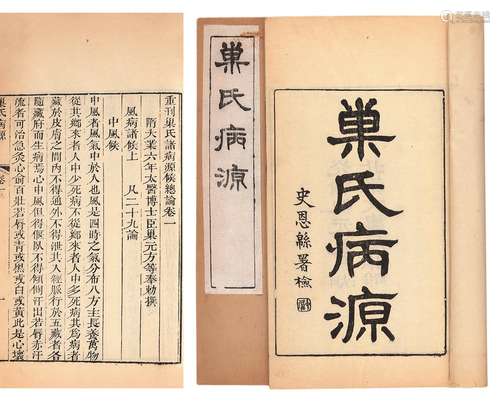 巢氏病源
史恩緜署檢
巢氏病源
重刊巢氏諸病源候總論卷一
隋大業六年太醫博士臣巢元方等奉勅撰
風病諸候上 凡二十九論
中風候
中風者風氣中於人也風是四時之氣分布八方主長養萬物
從其鄉來者人中少死病不從鄉來者人中多死病其為病者
藏於皮膚之間內不得通外不得泄其入經脈行於五藏者各
隨藏府而生病焉心中風但得偃臥不得傾側汗出若脣赤汗
流者可治急灸心俞百壯若脣或青或黑或白或黃此是心壞
巢氏病源 卷一 一